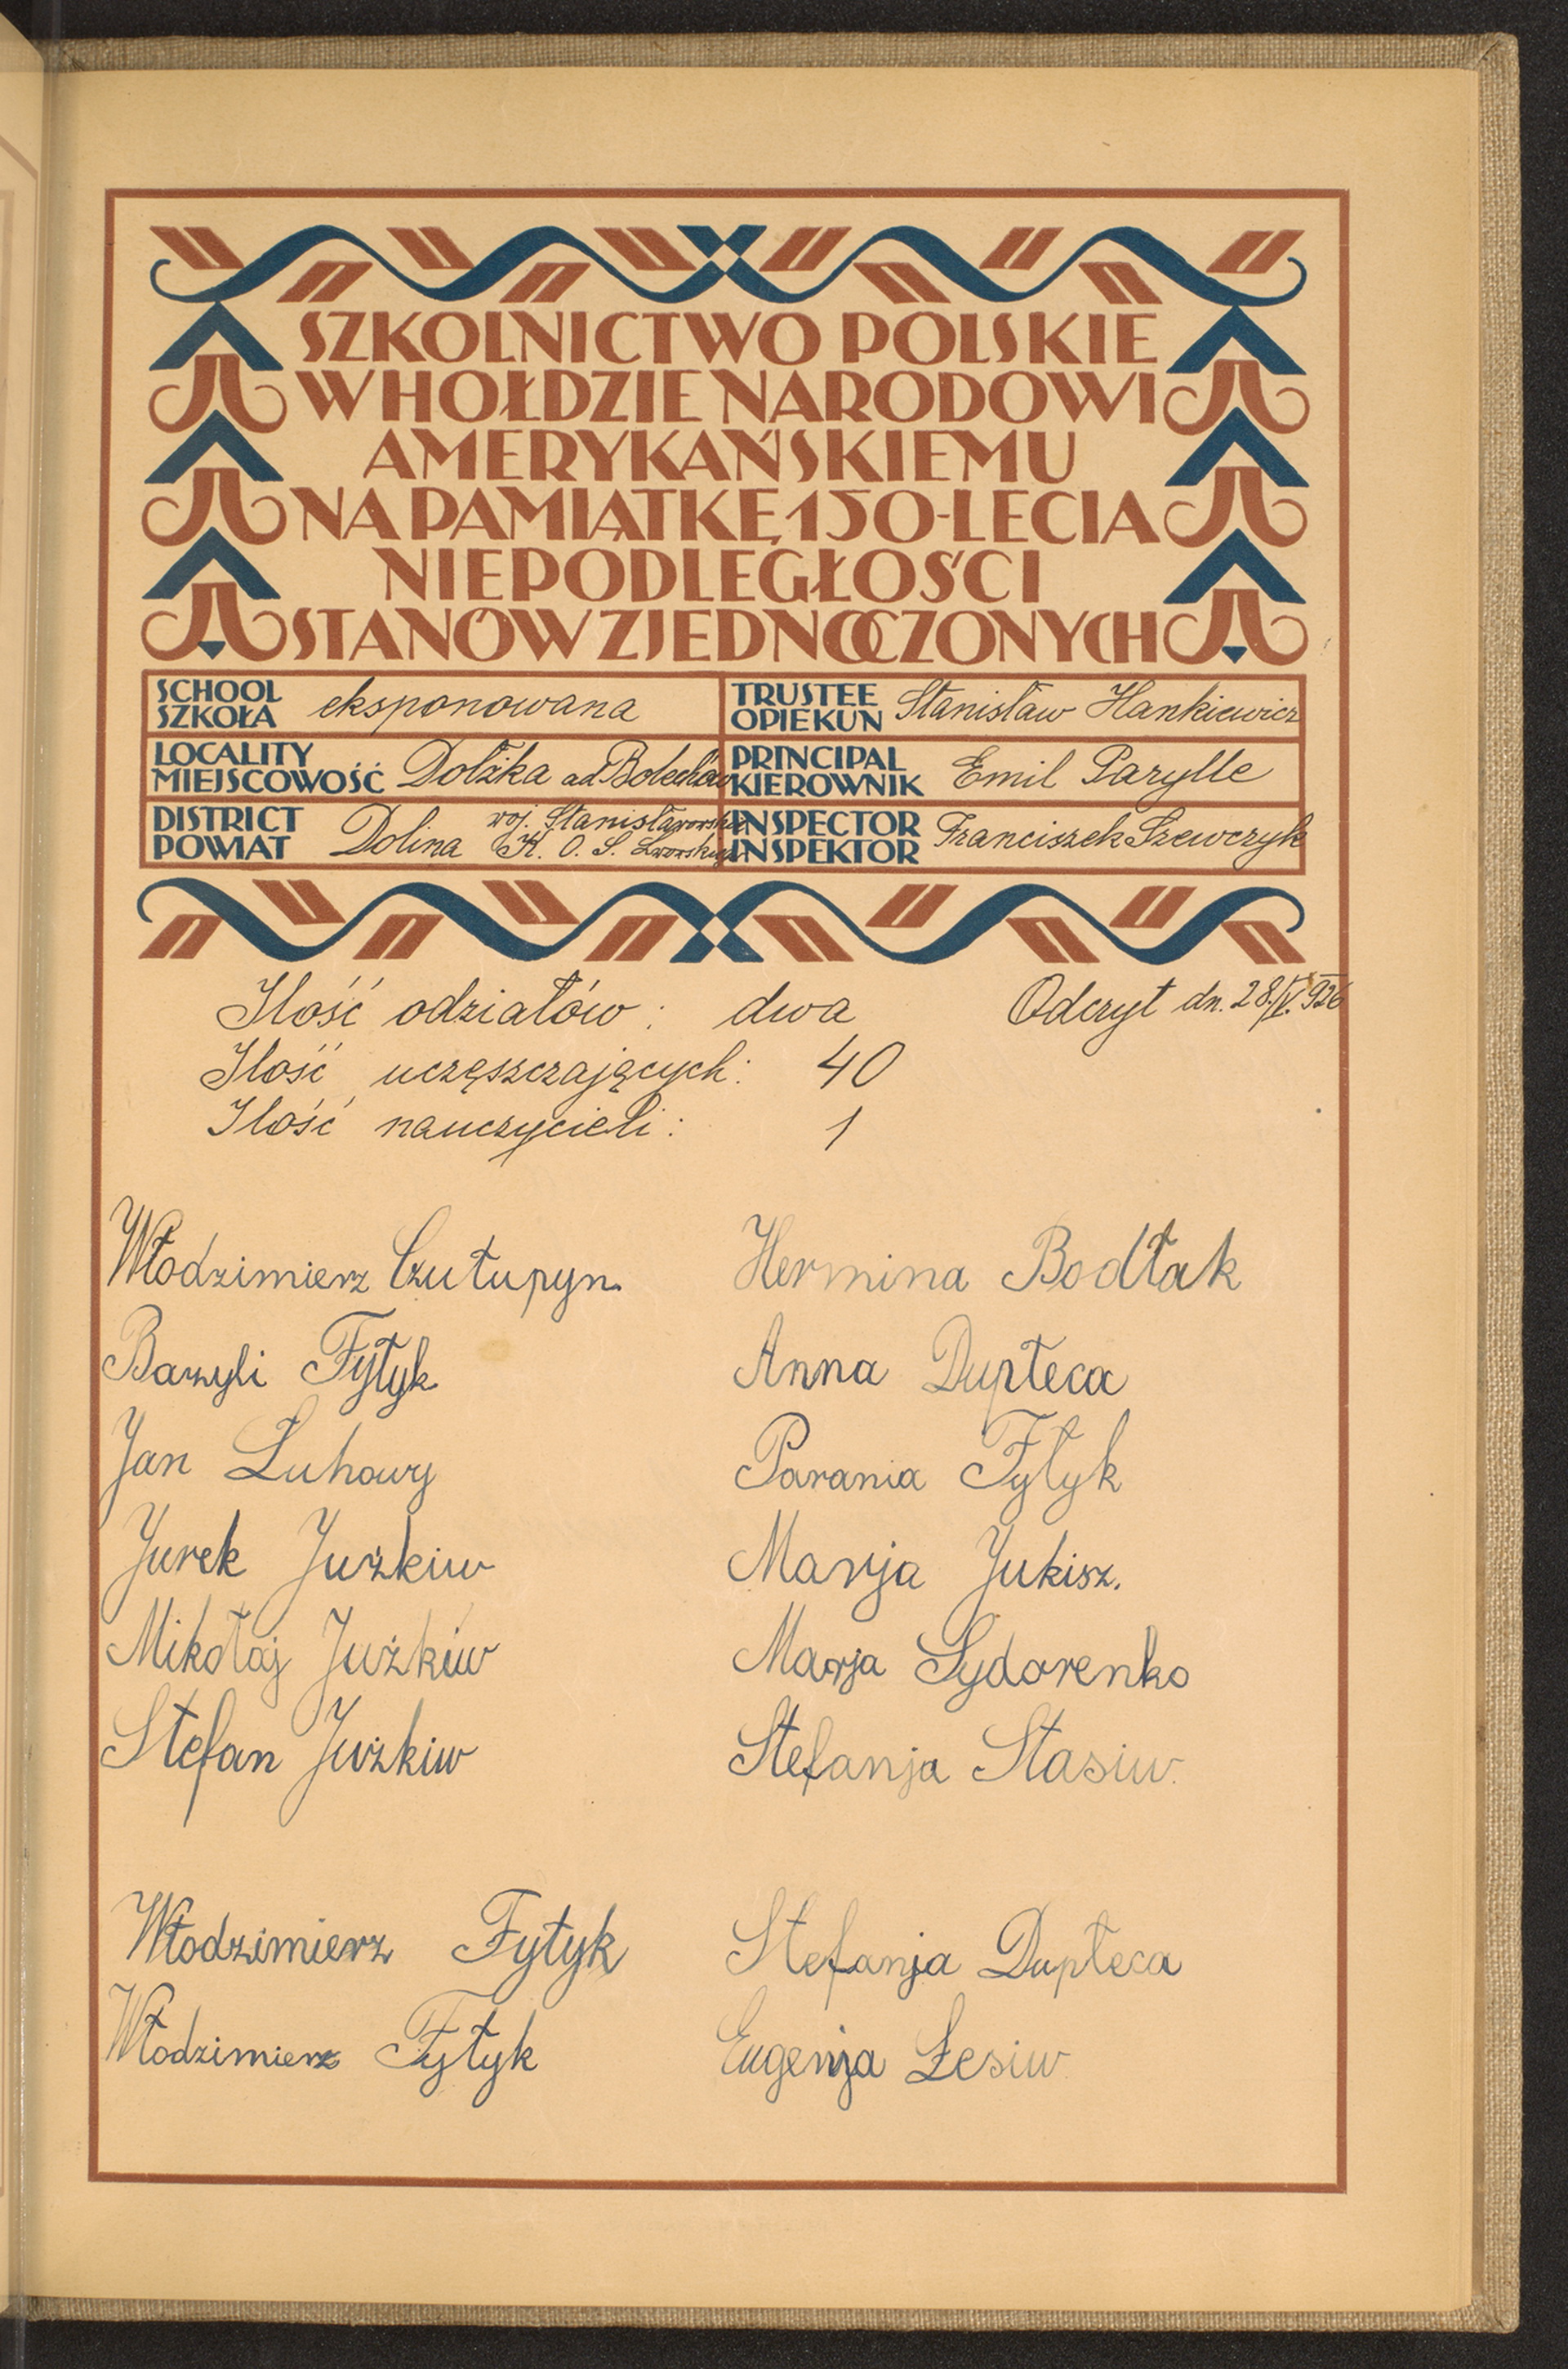 SZKOLNICTWO POLSKIE
W HOŁDZIE NARODOWI
AMERYKAŃSKIEMU
NA PAMIĄTKĘ 150-LECIA
NIEPODLEGŁOŚCI
STANÓW ZJEDNOCZONYCH
SCHOOL
SZKOŁA eksponowana
TRUSTEE
OPIEKUN Stanisław Hankiewicz
LOCALITY
MIEJSCOWOŚĆ Dołżka ad Bolechów
PRINCIPAL
KIEROWNIK Emil Parylle
DISTRICT
POWIAT Dolina woj. Stanisławowskie
K. O. S. Lwowskiego
INSPECTOR
INSPEKTOR Franciszek Szewczyk
Ilość odziałów : dwa
Odczyt dn. 28/V. 926
Ilość uczęszczających: 40
Ilość nauczycieli : 1
Włodzimierz Czutupyn.
Hermina Bodłak
Bazyli Fytyk
Anna Dupteca
Jan Łuhowy
Parania Fytyk
Jurek Juzkiw
Marija Jukisz.
Mikołaj Jużkiw
Marja Sydorenko
Stefan Jużkiw
Stefanja Stasiw.
Włodzimierz Fytyk
Stefanja Dupteca
Włodzimierz Fytyk
Eugenja Łesiw